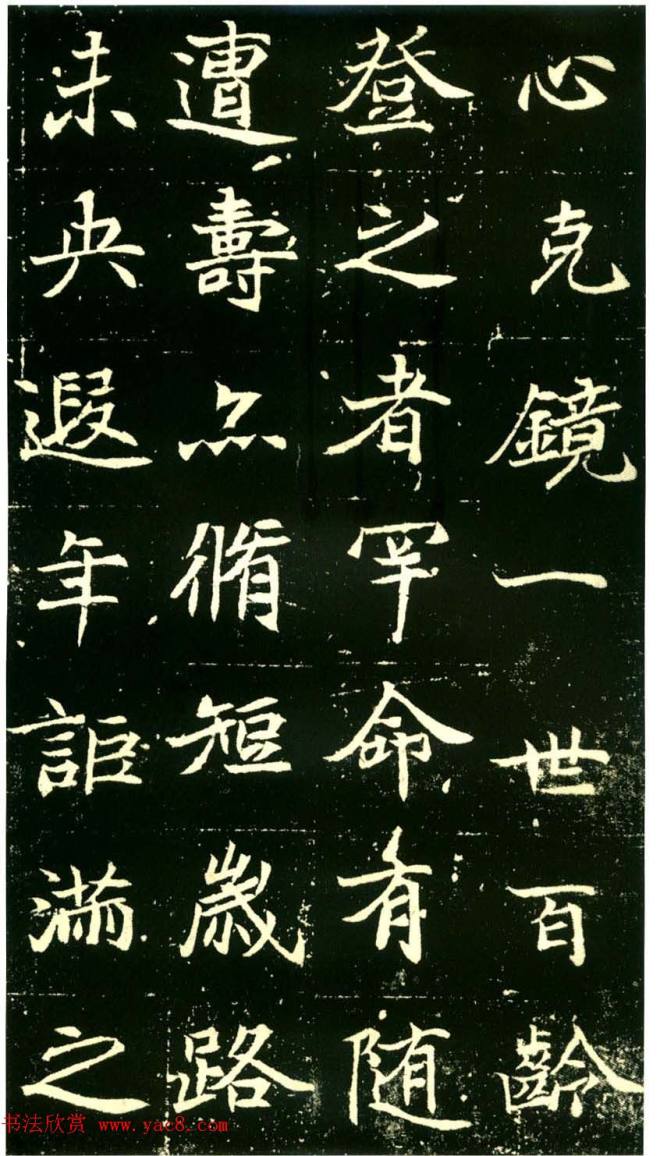 心克鏡一世百齡
登之者罕命有随
遭壽亦脩短歲路
未央遐年詎滿之
书法欣赏 www.yac8.com